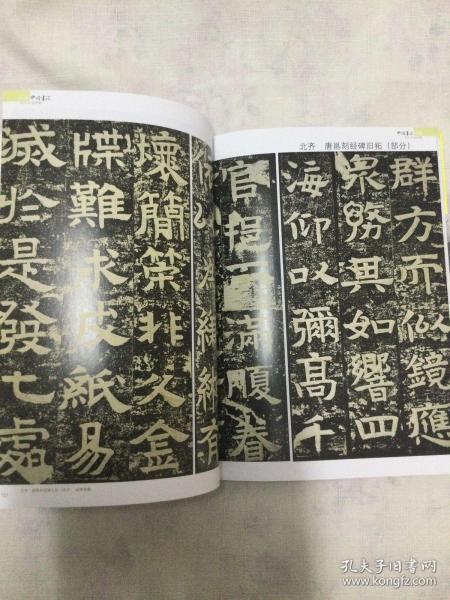 中国书法
中国书法
北齐　唐邕刻经碑旧拓（部分）
群方而似鏡應
衆務無如響四
海仰以彌高千
官挹滿眷
有
壞簡策非久金
牒難求皮紙易
滅於是發七處
孔夫子旧书网
www.kongfz.com